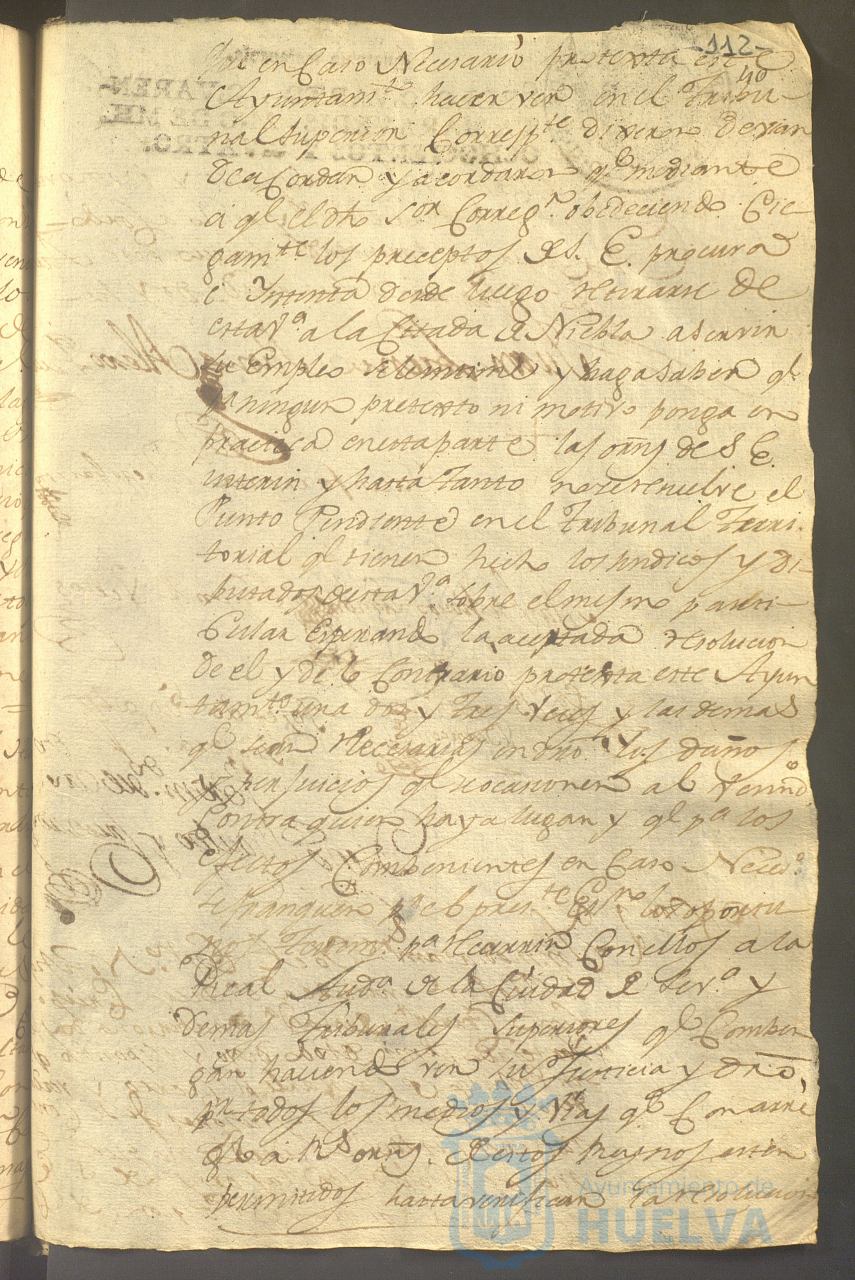 -112-
40
que en Caso Necesario protexta este
Ayuntam.to hacer ver en el Tribu-
nal Superior Corresp.te
de acordar y acordaron q.e mediante
a q.e el dho S.or Correg.r obedeciendo Cie-
gam.te los preceptos de S. E. procura
e Intenta desde luego retirarse de
esta V.a a la Citada de Niebla a servir
su Empleo se le intime y haga saber q.e
p.r ningun pretexto ni motivo ponga en
practica en esta parte las orns de S. E.
interin y hasta tanto no se resuelve el
Punto Pendiente en el Tribunal Terri-
torial q.e tienen hecho los sindicos y Di-
putados de esta V.a sobre el mismo parti-
cular Esperando la aceptada resolucion
de el y de lo Contrario protexta este Ayun
tam.to una dos y tres veces y las demas
q.e sean Necesarias en dro. los daños
y perjuicios q.e se ocasionen al Vecind.o
Contra quien haya lugar y q.e p.a los
efectos Combenientes en Caso Neces.o
se franqueen p.r el pres.te Ess.no los oportu-
nos Testim.s p.a recurrir Con ellos a la
Real Aud.a de la Ciudad de Sev.a y
demas Tribunales Superiores q.e Comben
gan haciendo ver su Justicia y dro,
p.r todos los medios y vias q.e Con arre
glo a R.s orns. de estos Reynos esten
permitidos hasta verificar la resolucion
Ayuntamiento de
HUELVA